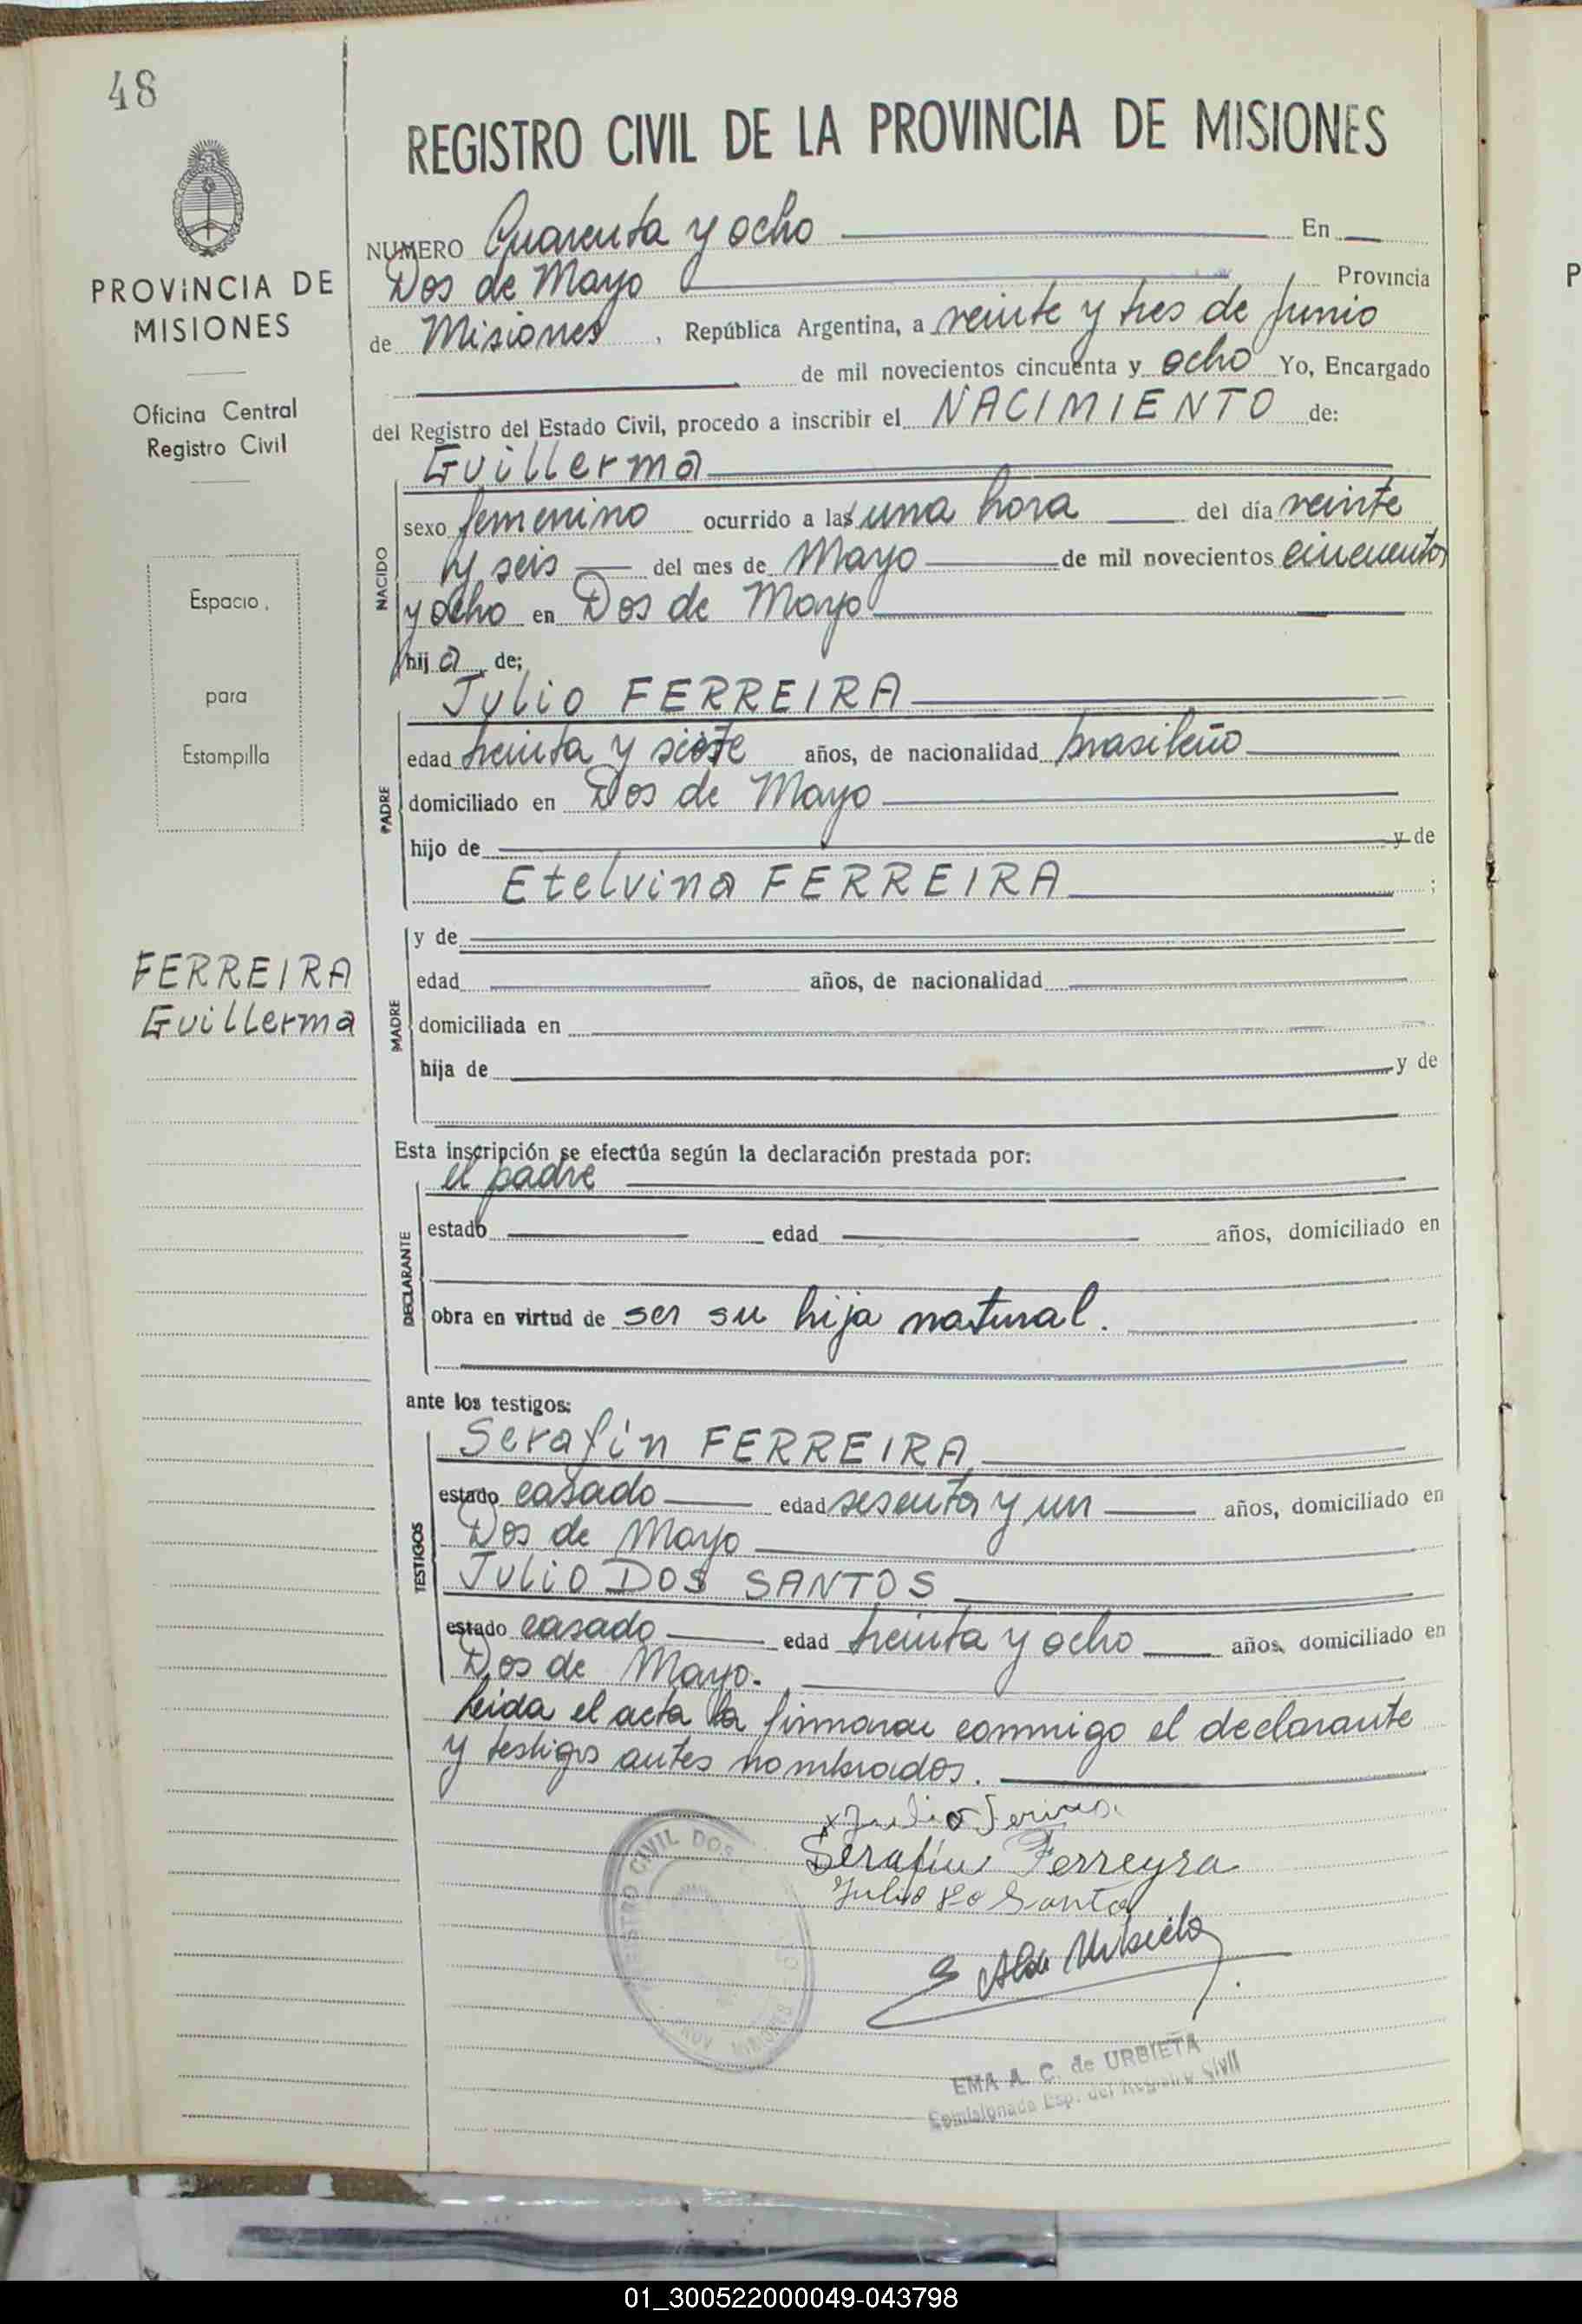 48
REGISTRO CIVIL DE LA PROVINCIA DE MISIONES
PROVINCIA DE
MISIONES
Oficina Central
Registro Civil
Espacio
para
Estampilla
FERREIRA
Guillerma
NUMERO Cuarenta y ocho En
Dos de Mayo Provincia
de Misiones, República Argentina, a veinte y tres de Junio
de mil novecientos cincuenta y ocho Yo, Encargado
del Registro del Estado Civil, procedo a inscribir el NACIMIENTO de:
NACIDO
Guillerma
sexo femenino ocurrido a las una hora del día veinte
y seis del mes de Mayo de mil novecientos cincuenta
y ocho en Dos de Mayo
hija de;
PADRE
Julio FERREIRA
edad treinta y siete años, de nacionalidad brasileño
domiciliado en Dos de Mayo
hijo de y de
Etelvina FERREIRA ;
MADRE
y de
edad años, de nacionalidad
domiciliada en
hija de y de
Esta inscripción se efectúa según la declaración prestada por:
DECLARANTE
el padre
estado edad años, domiciliado en
obra en virtud de ser su hija natural.
ante los testigos:
TESTIGOS
Serafín FERREIRA
estado casado edad sesenta y un años, domiciliado en
Dos de Mayo
Julio DOS SANTOS
estado casado edad treinta y ocho años, domiciliado en
Dos de Mayo.
leida el acta la firmaran conmigo el declarante
y testigos antes nombrados.
Julio
Serafin Ferreyra
Julio
CIVIL DOS
EMA A. C. de URBIETA
Comisionada Esp. del Registro Civil
01_300522000049-043798
P